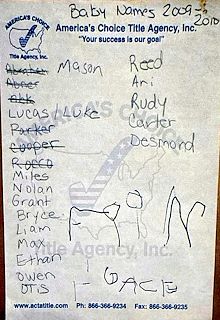 Baby Names 2009-
2010
AMERICA'S CHOICE
Title Agency, Inc.
America's Choice Title Agency, Inc.
"Your success is our goal"
Abraham
Abner
Mason
Lucas/Luke
Parker
Cooper
Rocco
Miles
Nolan
Grant
Bryce
Liam
Max
Ethan
Owen
Otis
Reed
Ari
Rudy
Carter
Desmond
AMERICA'S CHOICE
Title Agency, Inc.
GACE
www.actatitle.com Ph: 866-366-9234 Fax: 866-366-9235